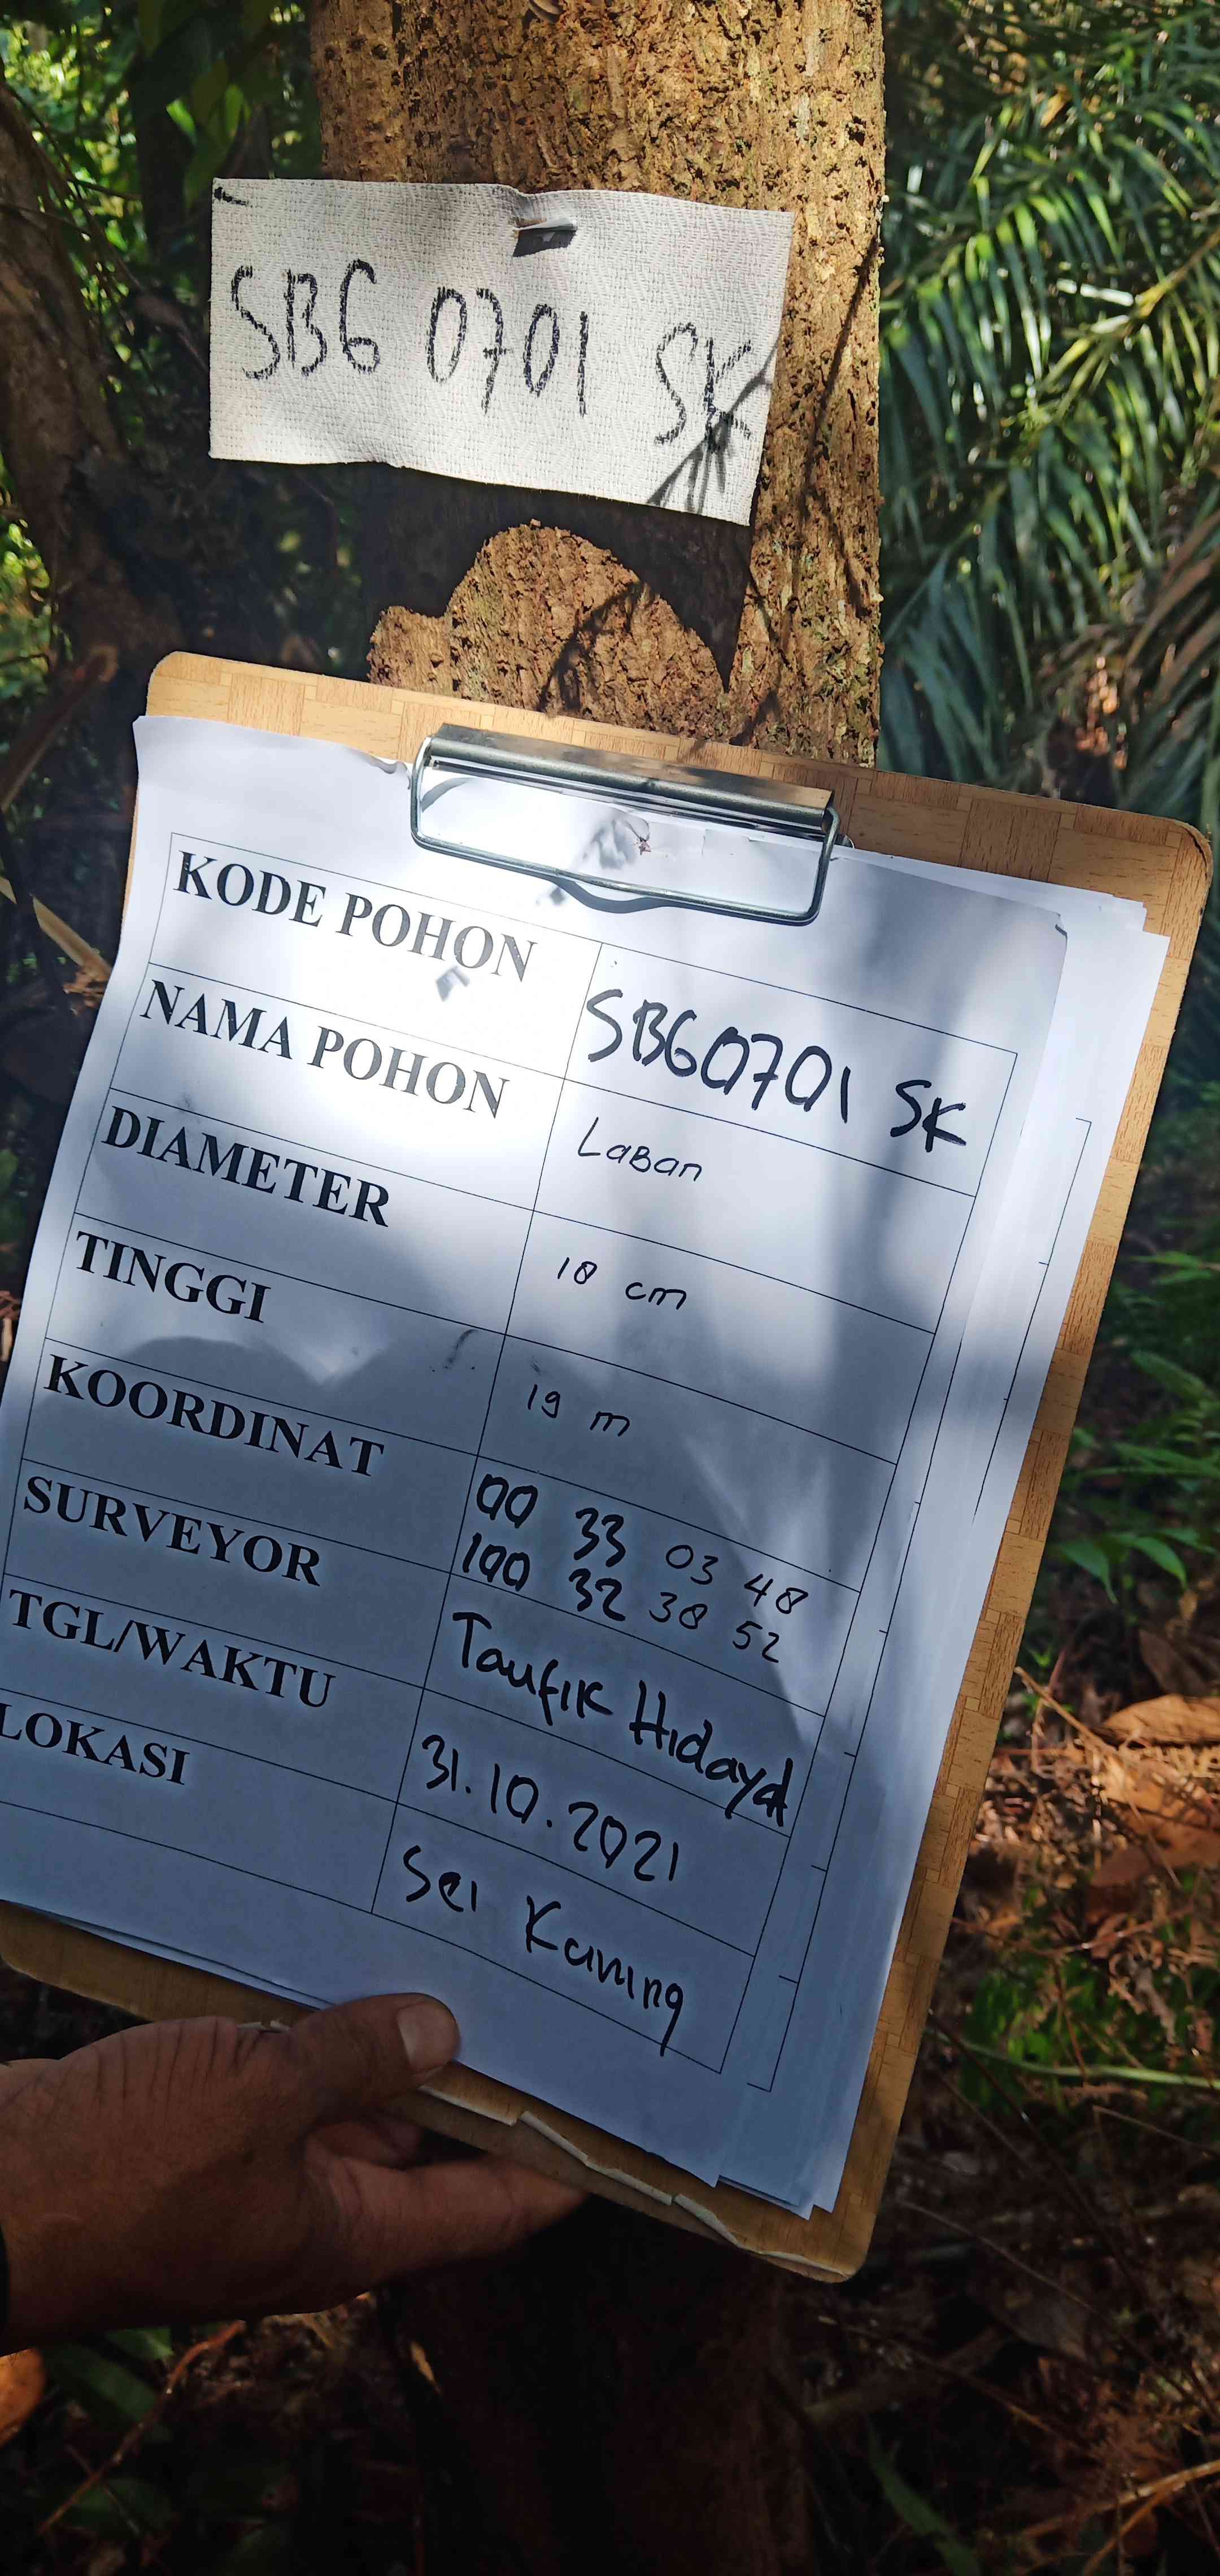 SBG 0701 SK
KODE POHON SBG0701 SK
NAMA POHON LaBan
DIAMETER 18 cm
TINGGI 19 m
KOORDINAT 00 33 03 48
100 32 38 52
SURVEYOR Taufik Hidayat
TGL/WAKTU 31.10.2021
LOKASI Sei Kuning